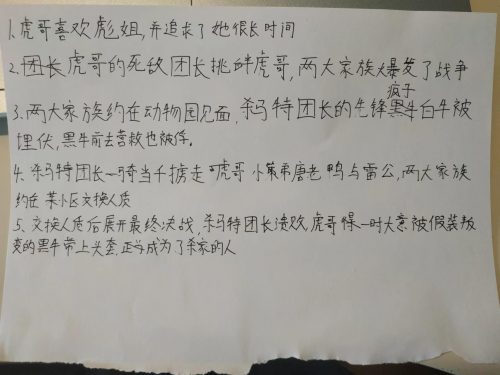 1.虎哥喜欢彪姐,并追求了她很长时间
2.团长虎哥的死敌团长挑衅虎哥,两大家族爆发了战争
疯子
3.两大家族约在动物园见面,杀马特团长的先锋黑牛白牛被
埋伏,黑牛前去营救也被俘.
4.杀马特团长一骑当千掳走虎哥小弟弟唐老鸭与雷公,两大家族
约在某小区交换人质
5.交换人质后展开最终决战,杀马特团长溃败,虎哥得一时大意被假装叛
变的黑牛带上头套,正式成为了杀家的人